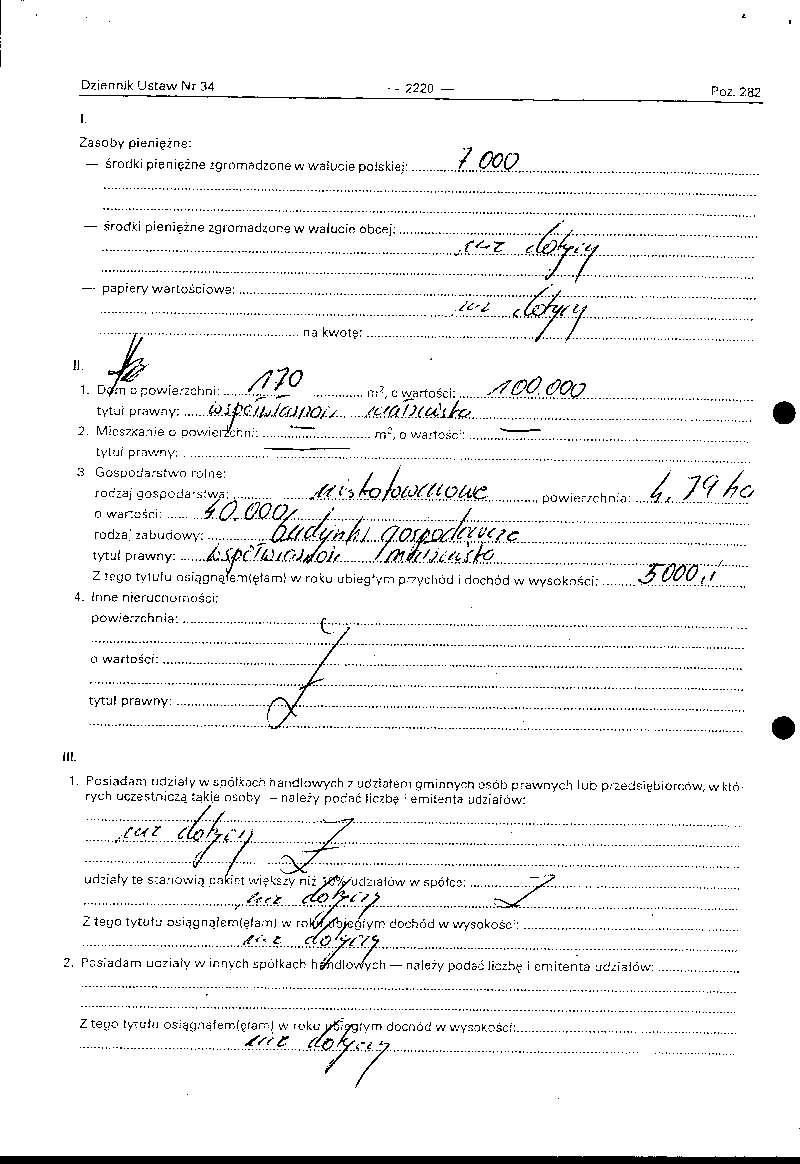 Dziennik Ustaw Nr 34 — 2220 — Poz. 282
I.
Zasoby pieniężne:
— środki pieniężne zgromadzone w walucie polskiej: 7.000
— środki pieniężne zgromadzone w walucie obcej:
nie dotyczy
— papiery wartościowe:
nie dotyczy
na kwotę:
II.
1. Dom o powierzchni: 170 m², o wartości: 100.000
tytuł prawny: współwłasność małżeńska
2. Mieszkanie o powierzchni: — m², o wartości: —
tytuł prawny: —
3. Gospodarstwo rolne:
rodzaj gospodarstwa: , powierzchnia: 4,79 ha
o wartości: 40.000
rodzaj zabudowy: budynki gospodarcze
tytuł prawny: współwłasność małżeńska
Z tego tytułu osiągnąłem(ęłam) w roku ubiegłym przychód i dochód w wysokości: 5000,-
4. Inne nieruchomości:
powierzchnia:
o wartości:
tytuł prawny:
III.
1. Posiadam udziały w spółkach handlowych z udziałem gminnych osób prawnych lub przedsiębiorców, w któ-
rych uczestniczą takie osoby — należy podać liczbę i emitenta udziałów:
nie dotyczy
udziały te stanowią pakiet większy niż 10% udziałów w spółce:
nie dotyczy
Z tego tytułu osiągnąłem(ęłam) w roku ubiegłym dochód w wysokości:
nie dotyczy
2. Posiadam udziały w innych spółkach handlowych — należy podać liczbę i emitenta udziałów:
Z tego tytułu osiągnąłem(ęłam) w roku ubiegłym dochód w wysokości:
nie dotyczy